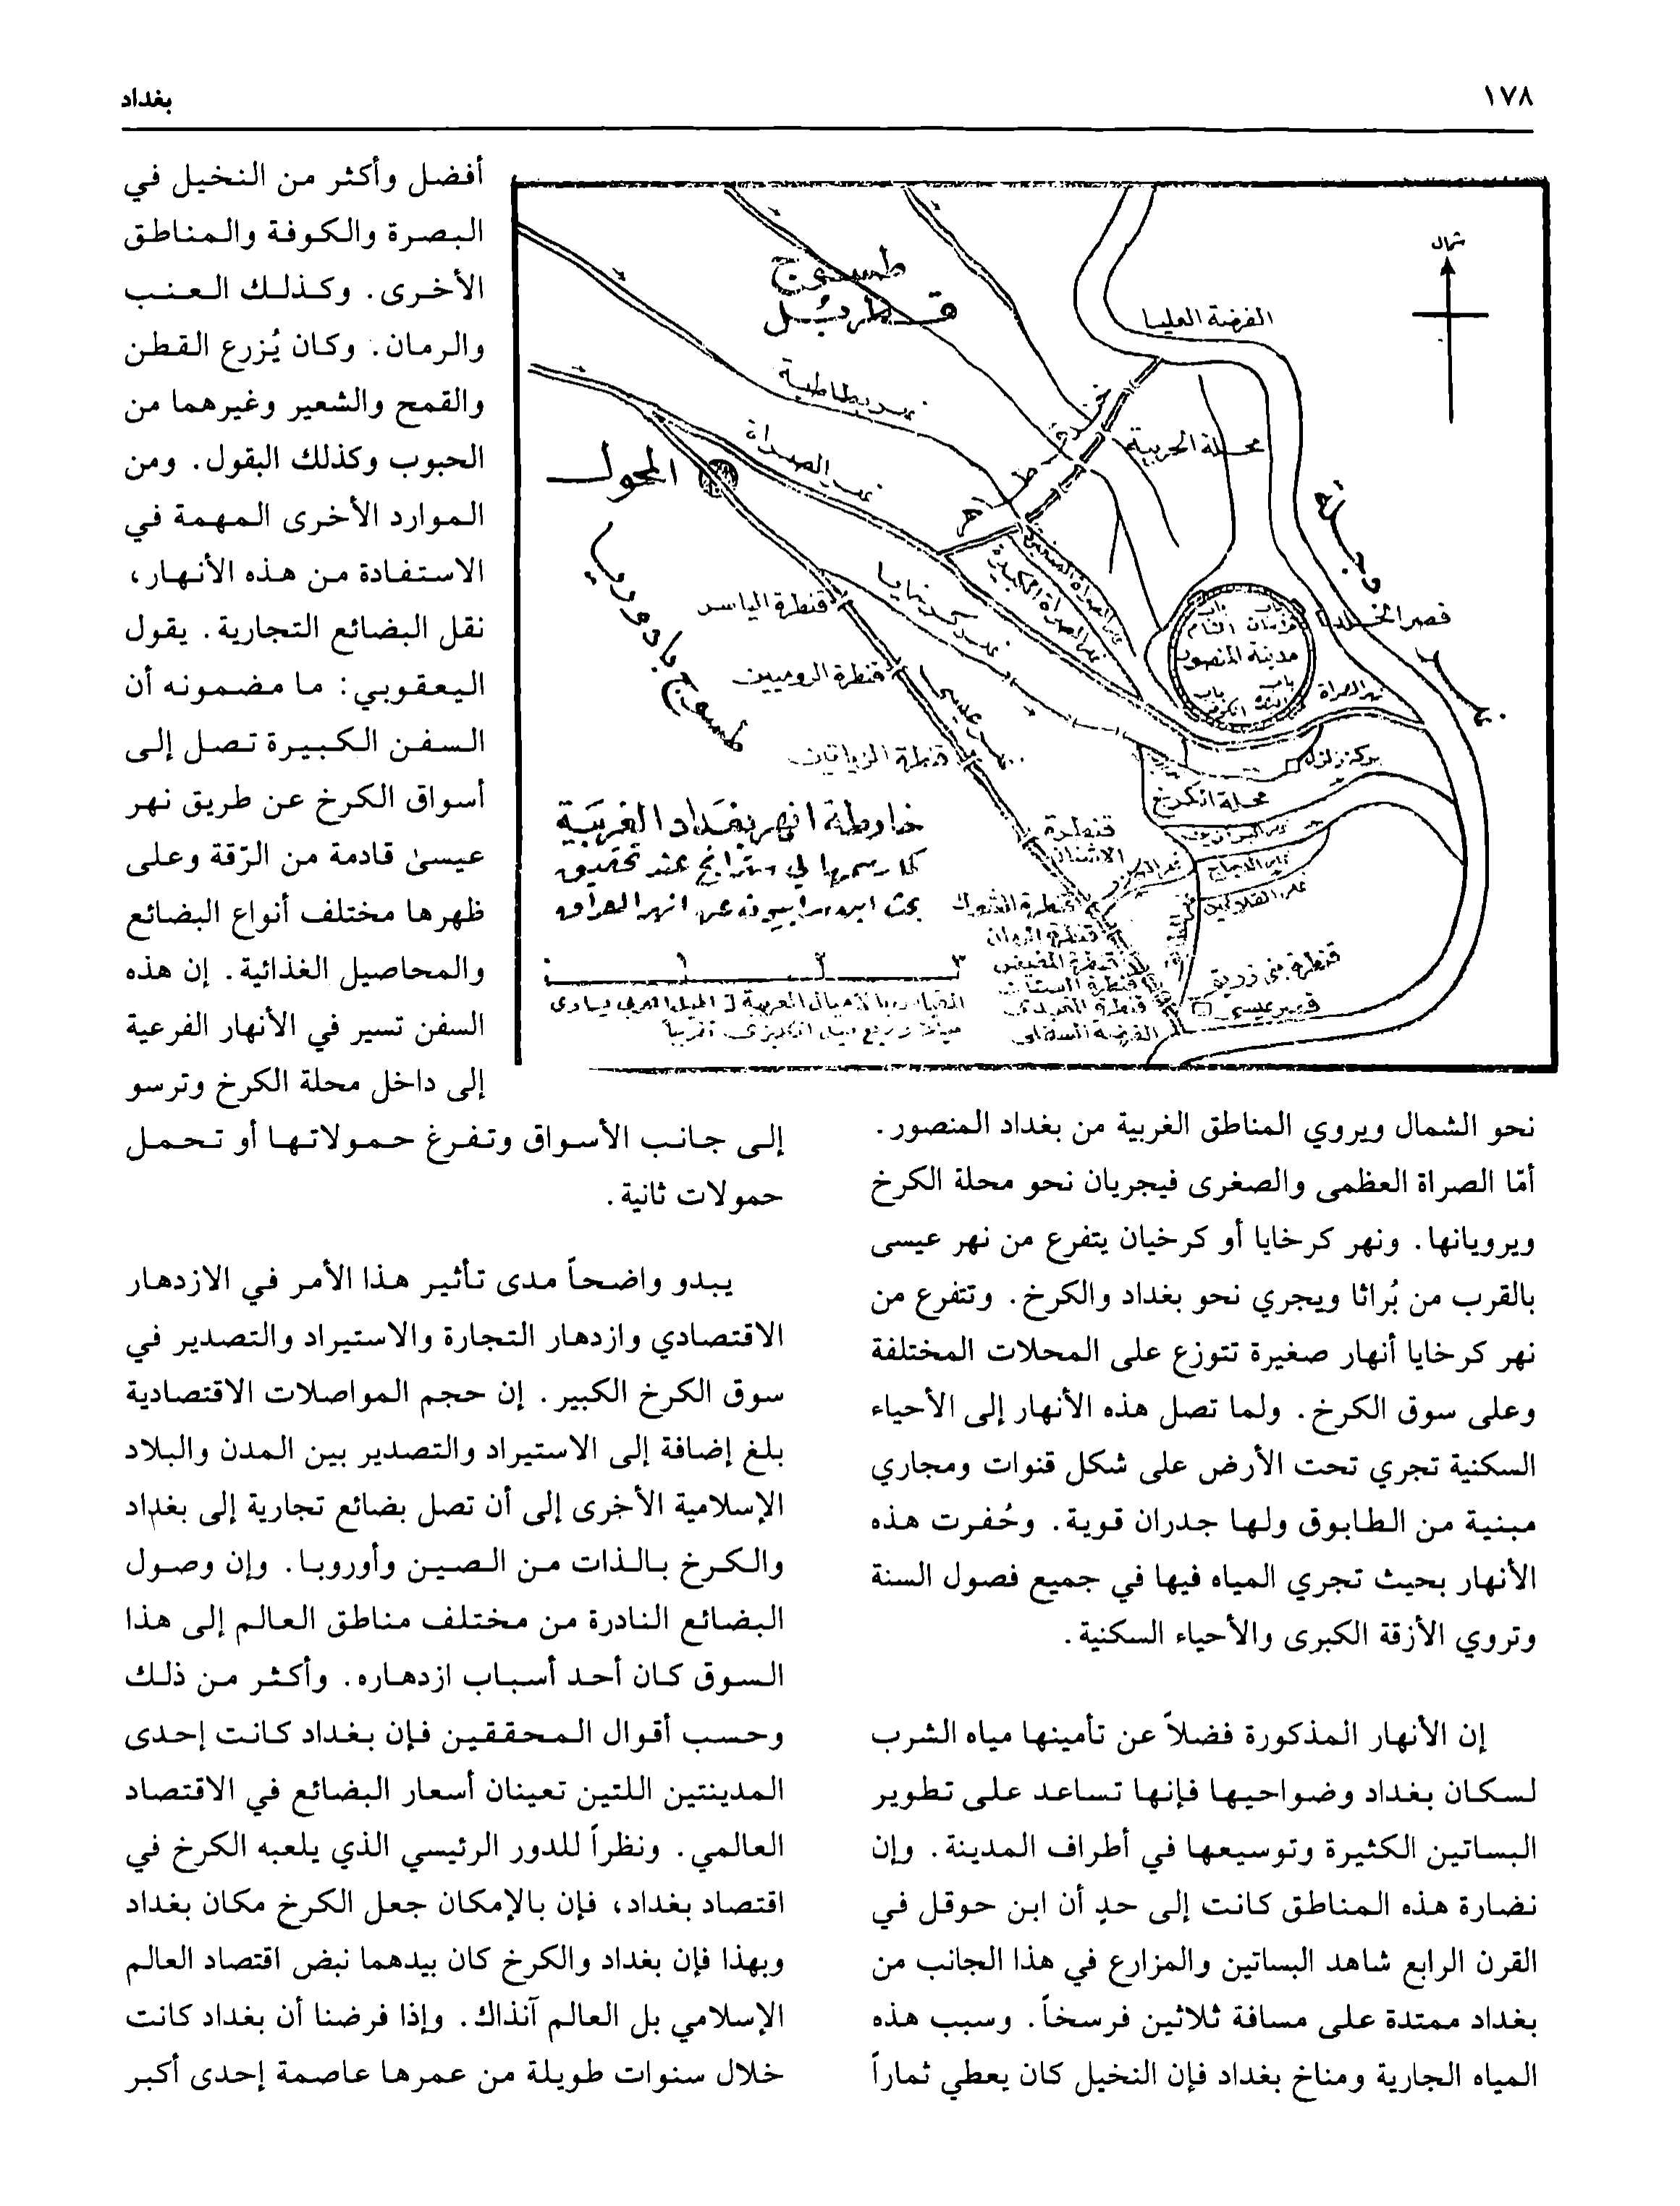 ١٧٨
بغداد
شمال
طسوج
قطربل
الفرضة العليا
نهر بطاطية
خندق طاهر
محلة الحربية
نهر الصراة
المحول
دجلة
نهر الصراة الكبيرة
نهر كرخايا
قنطرة الياسرية
قصر الخلد
باب
باب
خراسان الشام
مدينة المنصور
باب
باب
البصرة الكوفة
نهر الصراة
طسوج بادوريا
قنطرة الروميين
نهر عيسى
قنطرة الزياتين
بركة زلزل
محلة الكرخ
قنطرة
الاشنان
نهر الدجاج
نهر القلائين
قنطرة الشوك
قنطرة الرمان
قنطرة المغيض
قنطرة البستان
قنطرة المعبدي
الفرضة السفلى
قنطرة بني زريق
قصر عيسى
خارطة انهر بغداد الغربية
كما رسمها لي سترانج عند تحقيق
بحث ابن سرابيون عن انهر العراق
٠ ١ ٢ ٣
القياس بالاميال العربية والميل العربي يساوي
ميلا وربع ميل انكليزي تقريباً
نحو الشمال ويروي المناطق الغربية من بغداد المنصور.
أمّا الصراة العظمى والصغرى فيجريان نحو محلة الكرخ
ويرويانها. ونهر كرخايا أو كرخيان يتفرع من نهر عيسى
بالقرب من بُراثا ويجري نحو بغداد والكرخ. وتتفرع من
نهر كرخايا أنهار صغيرة تتوزع على المحلات المختلفة
وعلى سوق الكرخ. ولما تصل هذه الأنهار إلى الأحياء
السكنية تجري تحت الأرض على شكل قنوات ومجاري
مبنية من الطابوق ولها جدران قوية. وحُفرت هذه
الأنهار بحيث تجري المياه فيها في جميع فصول السنة
وتروي الأزقة الكبرى والأحياء السكنية.
إن الأنهار المذكورة فضلاً عن تأمينها مياه الشرب
لسكان بغداد وضواحيها فإنها تساعد على تطوير
البساتين الكثيرة وتوسيعها في أطراف المدينة. وإن
نضارة هذه المناطق كانت إلى حدٍ أن ابن حوقل في
القرن الرابع شاهد البساتين والمزارع في هذا الجانب من
بغداد ممتدة على مسافة ثلاثين فرسخاً. وسبب هذه
المياه الجارية ومناخ بغداد فإن النخيل كان يعطي ثماراً
أفضل وأكثر من النخيل في
البصرة والكوفة والمناطق
الأخرى. وكذلك العنب
والرمان. وكان يُزرع القطن
والقمح والشعير وغيرهما من
الحبوب وكذلك البقول. ومن
الموارد الأخرى المهمة في
الاستفادة من هذه الأنهار،
نقل البضائع التجارية. يقول
اليعقوبي: ما مضمونه أن
السفن الكبيرة تصل إلى
أسواق الكرخ عن طريق نهر
عيسىٰ قادمة من الرّقة وعلى
ظهرها مختلف أنواع البضائع
والمحاصيل الغذائية. إن هذه
السفن تسير في الأنهار الفرعية
إلى داخل محلة الكرخ وترسو
إلى جانب الأسواق وتفرغ حمولاتها أو تحمل
حمولات ثانية.
يبدو واضحاً مدى تأثير هذا الأمر في الازدهار
الاقتصادي وازدهار التجارة والاستيراد والتصدير في
سوق الكرخ الكبير. إن حجم المواصلات الاقتصادية
بلغ إضافة إلى الاستيراد والتصدير بين المدن والبلاد
الإسلامية الأخرى إلى أن تصل بضائع تجارية إلى بغداد
والكرخ بالذات من الصين وأوروبا. وإن وصول
البضائع النادرة من مختلف مناطق العالم إلى هذا
السوق كان أحد أسباب ازدهاره. وأكثر من ذلك
وحسب أقوال المحققين فإن بغداد كانت إحدى
المدينتين اللتين تعينان أسعار البضائع في الاقتصاد
العالمي. ونظراً للدور الرئيسي الذي يلعبه الكرخ في
اقتصاد بغداد، فإن بالإمكان جعل الكرخ مكان بغداد
وبهذا فإن بغداد والكرخ كان بيدهما نبض اقتصاد العالم
الإسلامي بل العالم آنذاك. وإذا فرضنا أن بغداد كانت
خلال سنوات طويلة من عمرها عاصمة إحدى أكبر